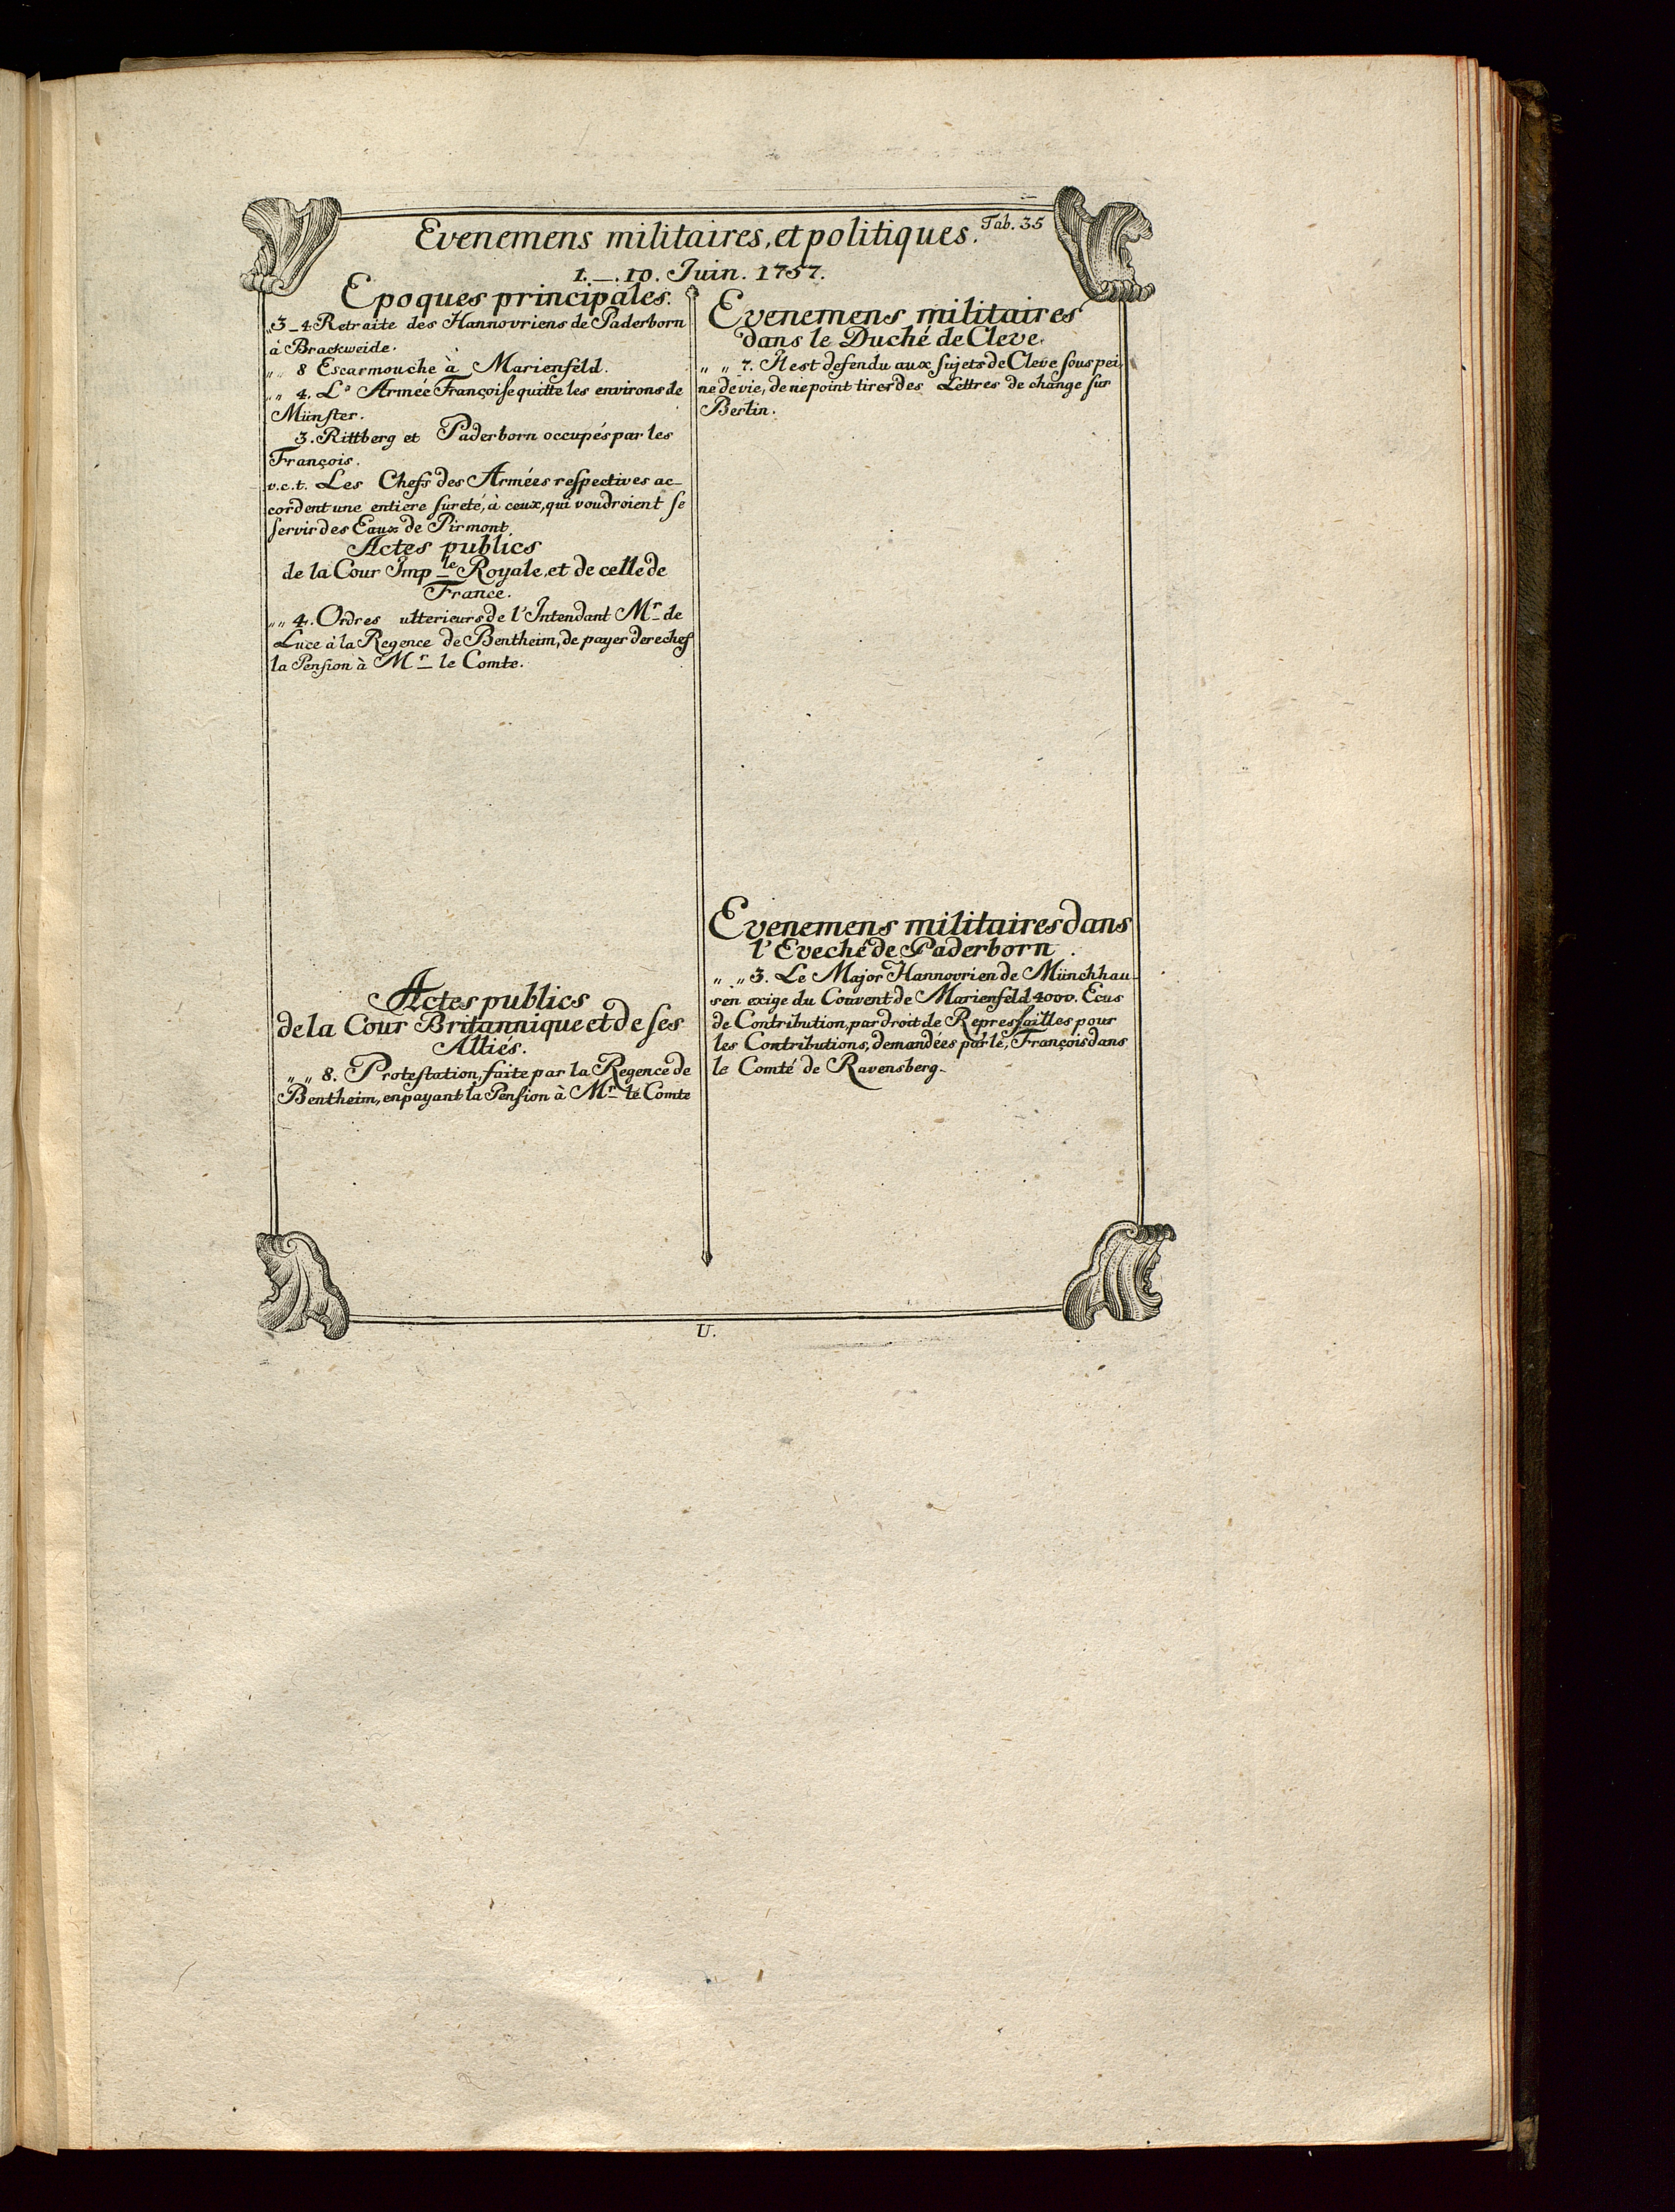 Evenemens militaires, et politiques. Tab. 35
1. — 10. Juin. 1757.
Epoques principales.
„3_4 Retraite des Hannovriens de Paderborn
à Brackweide.
„ „ 8 Escarmouche à Marienfeld.
„ „ 4. L' Armée Françoiſe quitte les environs de
Münſter.
3. Rittberg et Paderborn occupés par les
François.
v.c.t. Les Chefs des Armées reſpectives ac_
cordent une entiere ſureté, à ceux, qui voudroient ſe
ſervir des Eaux de Pirmont
Actes publics
de la Cour Imp_le Royale, et de celle de
France.
„ „ 4. Ordres ulterieurs de l'Intendant Mr_ de
Luce à la Regence de Bentheim, de payer derechef
la Penſion à Mr_ le Comte.
Actes publics
de la Cour Britannique et de ſes
Alliés.
„ „ 8. Proteſtation, faite par la Regence de
Bentheim, en payant la Penſion à Mr_ le Comte
Evenemens militaires
dans le Duché de Cleve.
„ „ 7. Il est defendu aux ſujets de Cleve ſous pei_
ne de vie, de ne point tirer des Lettres de change ſur
Berlin.
Evenemens militaires dans
l'Eveché de Paderborn.
„ „ 3. Le Major Hannovrien de Münchhau_
sen exige du Couvent de Marienfeld 4000. Ecus
de Contribution, par droit de Repreſſailles pour
les Contributions, demandées par le, François dans
le Comté de Ravensberg.
U.